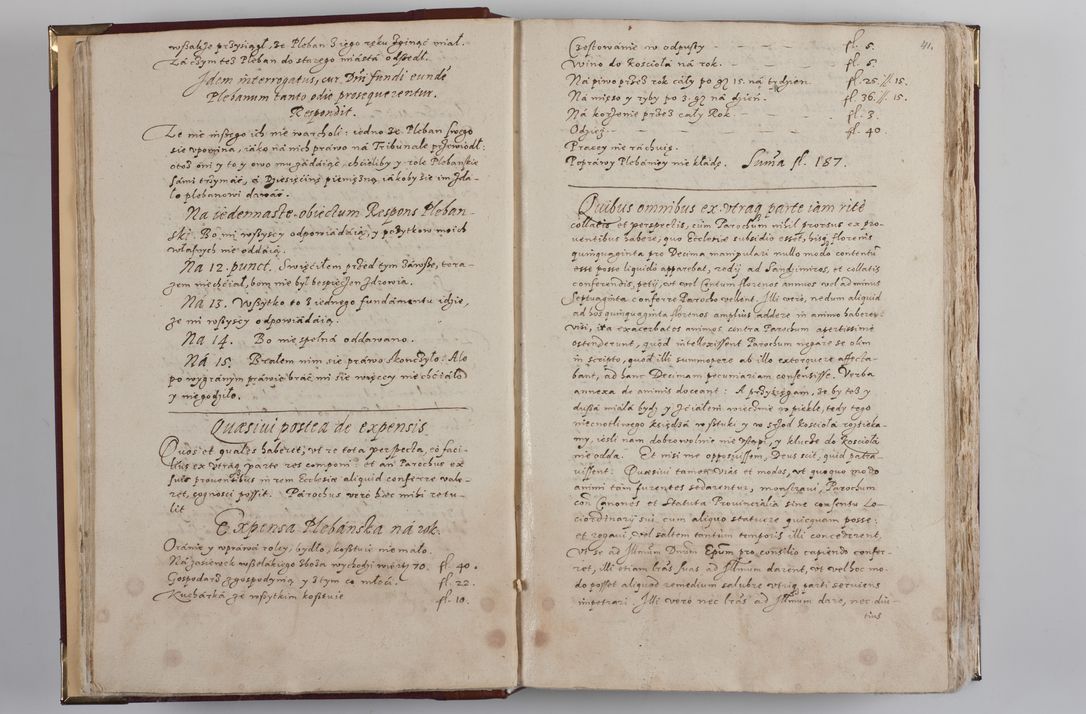 wszakże przysiągł, że Pleban z iego ręku zginąć miał.
Za czym też Pleban do starego miásta odszedł.
Idem interrogatus, cur Dni fundi eundē
Plebanum tanto odio prosequerentur.
Respondit.
Że nie inszego ich nie warcholi: iedno że Pleban swego
sie vpomina, iáko ná nich práwo ná Tribunale przewiodł:
otoż oni y to y owo mu zádáiąc, chcieliby y role Plebańskie
sámi trzymáć, á Dziesięcinę pieniężną iákoby sie im zdá-
ło plebanowi dawáć.
Na iedennaste obiectum Respons Pleban-
ski. Bo mi wszyscy odpowiádáią, y pożytkow moich
własnych nie oddáią.
Na 12. punct. Swięciłem przed tym Zároste, tera-
zem nie chciał, bom nie był bespieczen zdrowia.
Ná 13. Wszytko to z iednego fundamentu idzie,
że mi wszyscy odpowiádáią.
Na 14. Bo nie spełná oddawano.
Ná 15. Brałem nim sie práwo skończyło: Ale
po wygránym práwie bráć mi sie więcey nie chciáło
y nie godziło.
Quæsiui postea de expensis
Quos et quales haberet, vt re tota perspecta, eò faci-
lius ex vtraq parte res componi: et an Parochus ex
suis prouentibus in rem Ecclesiæ aliquid conferre vale-
ret, cognosci possit. Párochus verò hæc mihi retu-
lit
Expensa Plebánska ná rok.
Oránie y vpráwá roley, bydło, kosztuie nie mało.
Ná zasiewek wszelákiego zboża wychodzi miáry 70. fl. 40.
Gospodarz z gospodynią y z tym co młoci. fl. 22.
Kuchárká, że wszytkim kosztuie fl. 10.
41.
Częstowanie w odpusty fl. 5.
Wino do kosciołá ná rok. fl. 6.
Ná piwo przez rok cáły po gz 15. ná tydzien. fl. 25. // 15.
Ná mięso y ryby po 3. gz ná dzień. fl. 36. // 15.
Ná korzenie przez cáły Rok. fl. 3.
Odzież fl. 40.
Pracey nie ráchuię.
Popráwy Plebániey nie kłádę. Suma fl. 187.
Quibus omnibus ex vtraq parte iàm ritè
collatis et perspectis, cùm Parochum nihil prorsus ex pro-
uentibus habere, quo Ecclesiæ subsidio esset, hisq florenis
quinquaginta pro Decima manipulari nullo modo contentū
esse posse liquidò apparebat, redij ad Sandzimiros, et collatis
conferendis, petij, vt vel Centum florenos annuos vel ad minus
Septuaginta conferre Parocho vellent. Illi verò, nedum aliquid
ad hos quinquaginta florenos ampliùs addere in animo haberent
visi, ita exacerbatos animos contra Parochum apertissimè
ostenderunt, quòd intellexissent Parochum negare se olim
in scripto, quod illi summopere ab illo extorquere affecta-
bant, ad hanc Decimam pecuniariam consensisse. Verba
annexa de animis doceant: A przysięgam, że by też y
duszá miałá bydź y z ciałem wiecznie w piekle, tedy tego
niecnotliwego księdzá w sztuki y w schod kosciołá rozsieka-
my, iesli nam dobrowolnie nie vstąpi, y kluczy do kosciołá
nie odda. Et nisi me opposuissem, Deus scit, quid patra-
uissent: Quæsiui tamen vias et modos, vt quoquo modo
animi tàm furentes sedarentur, monstraui, Parochum
con Canones et Statuta Prouincialia sine consensu Lo-
ciordinarij sui cum aliquo statuere quicquam posse:
et rogaui, vel saltem tantum temporis illi concederent,
vt se ad Illmum Dnum Epum pro consilio capiendo confer-
ret, illi etiam lras suas ad Illmum darent, vt vel hoc mo-
do posset aliquod remedium salubre vtriq parti seruiens
impetrari. Illi verò nec lras ad Illmum dare, nec diu-
tius